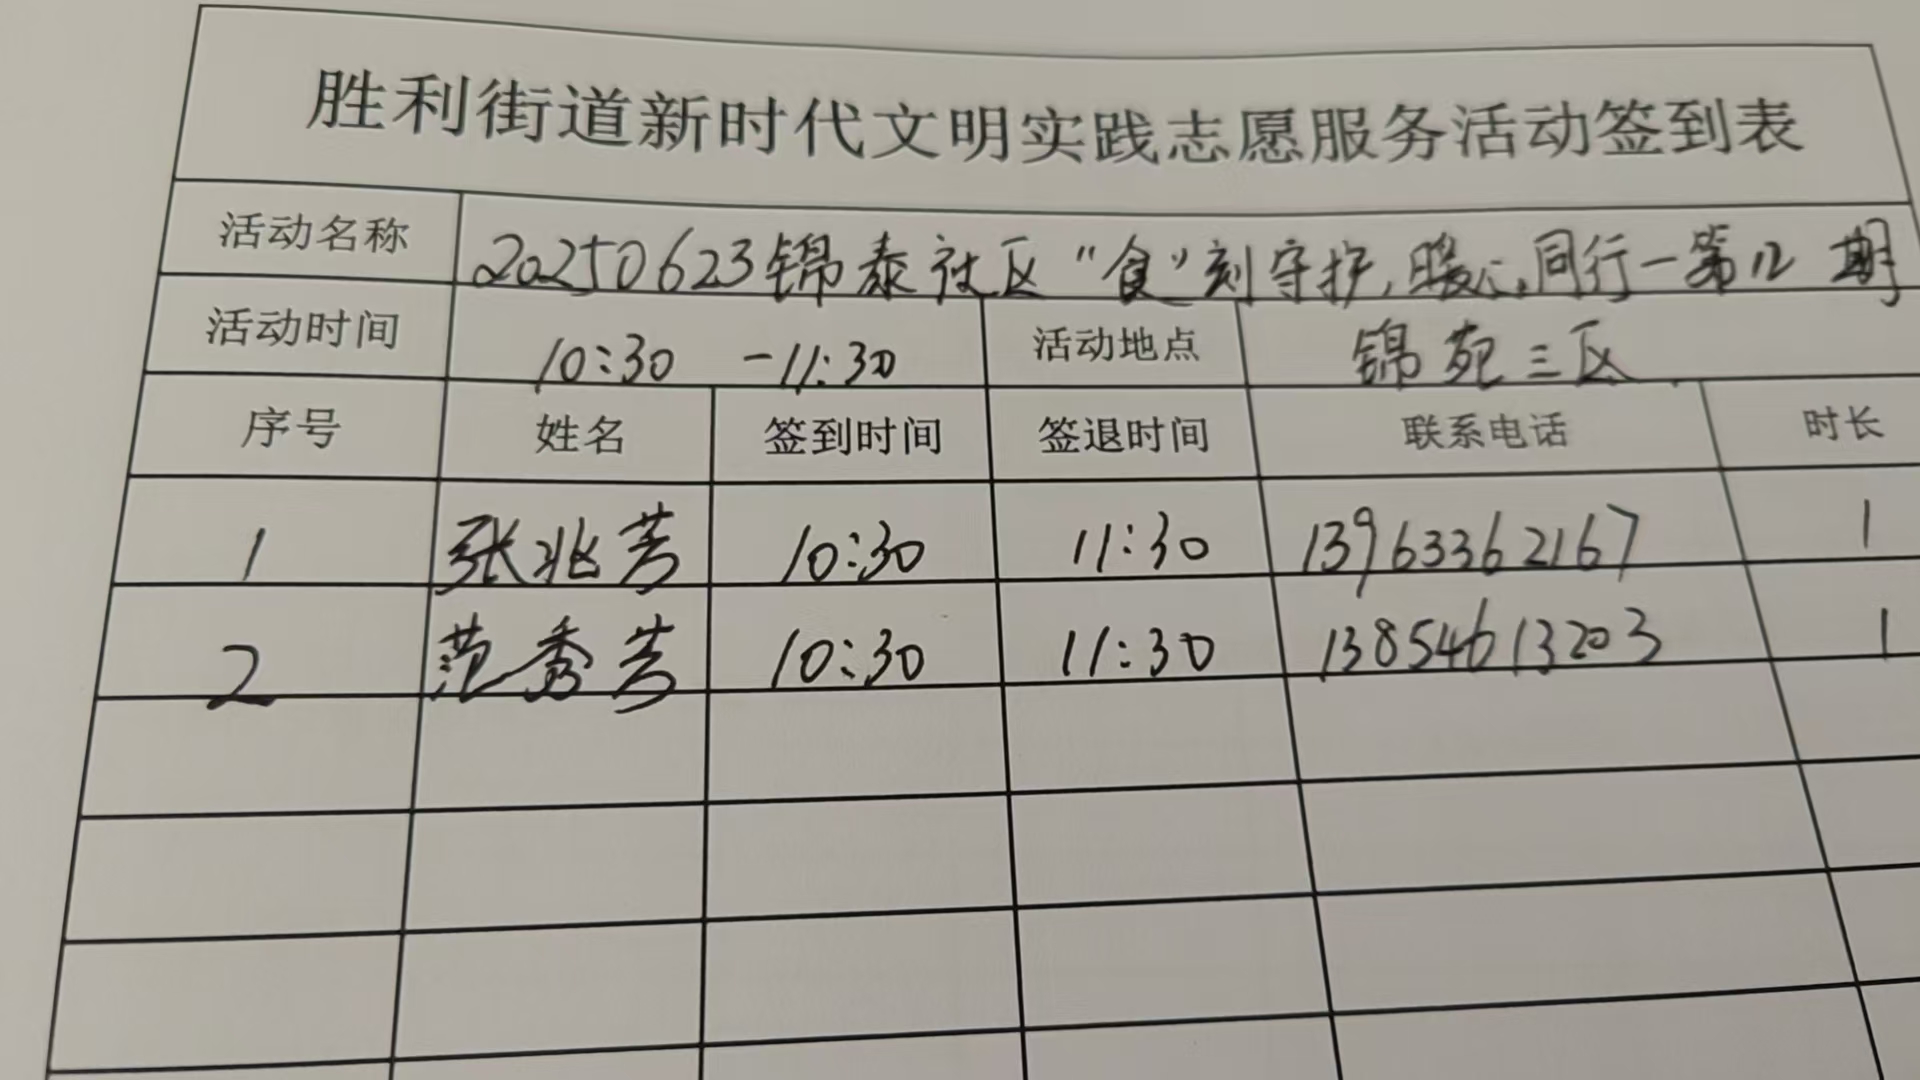 胜利街道新时代文明实践志愿服务活动签到表
活动名称 20250623锦泰社区“食”刻守护,暖心同行—第12期
活动时间 10:30 -11:30 活动地点 锦苑三区
序号 姓名 签到时间 签退时间 联系电话 时长
1 张兆芳 10:30 11:30 13963362167 1
2 范秀芳 10:30 11:30 13854613203 1